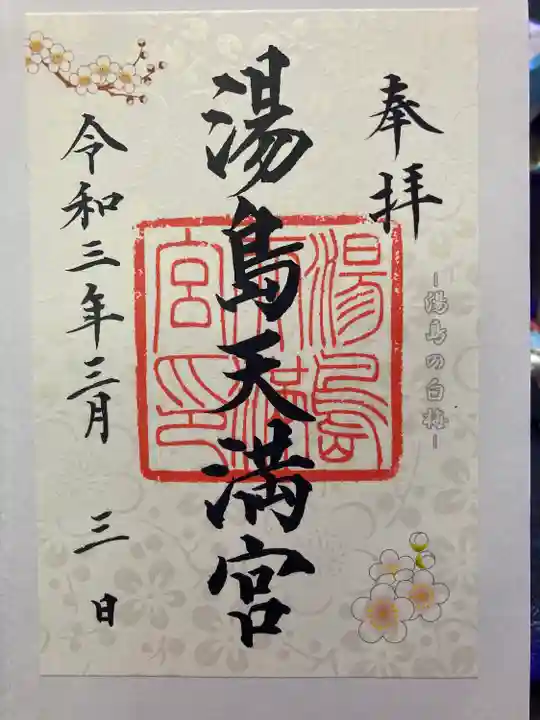 奉拝
-湯島の白梅-
湯島天満宮
湯島天満宮印
令和三年三月三日